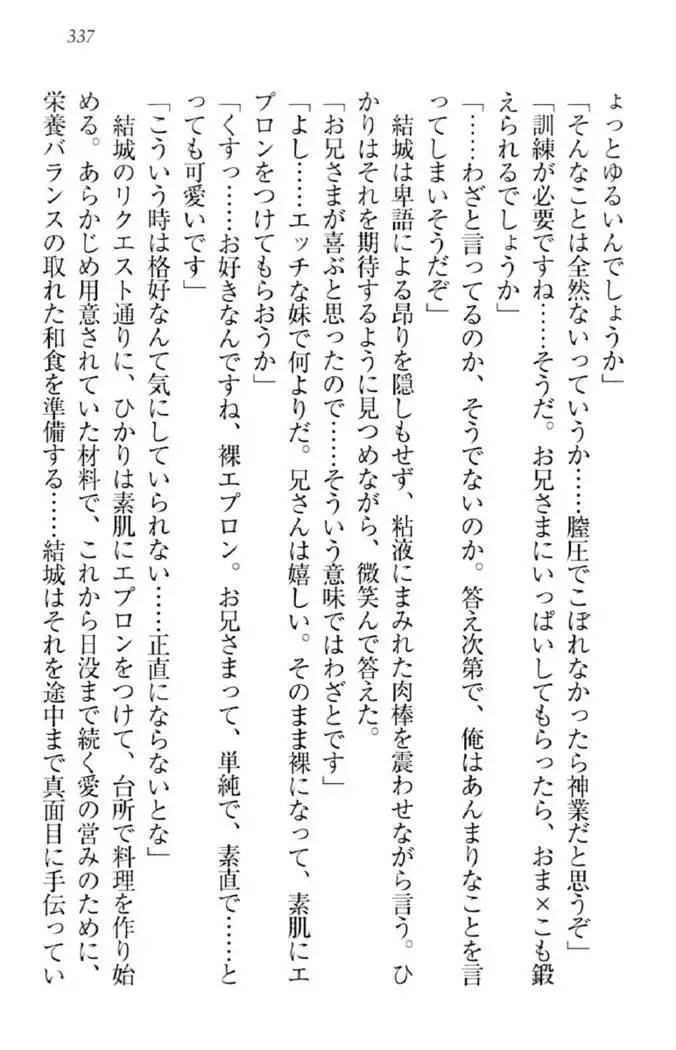 337
ょっとゆるいんでしょうか」
「そんなことは全然ないっていうか……膣圧でこぼれなかったら神業だと思うぞ」
「訓練が必要ですね……そうだ。お兄さまにいっぱいしてもらったら、おま×こも鍛
えられるでしょうか」
「……わざと言ってるのか、そうでないのか。答え次第で、俺はあんまりなことを言
ってしまいそうだぞ」
結城は卑語による昂りを隠しもせず、粘液にまみれた肉棒を震わせながら言う。ひ
かりはそれを期待するように見つめながら、微笑んで答えた。
「お兄さまが喜ぶと思ったので……そういう意味ではわざとです」
「よし……エッチな妹で何よりだ。兄さんは嬉しい。そのまま裸になって、素肌にエ
プロンをつけてもらおうか」
「くすっ……お好きなんですね、裸エプロン。お兄さまって、単純で、素直で……と
っても可愛いです」
「こういう時は格好なんて気にしていられない……正直にならないとな」
結城のリクエスト通りに、ひかりは素肌にエプロンをつけて、台所で料理を作り始
める。あらかじめ用意されていた材料で、これから日没まで続く愛の営みのために、
栄養バランスの取れた和食を準備する……結城はそれを途中まで真面目に手伝ってい